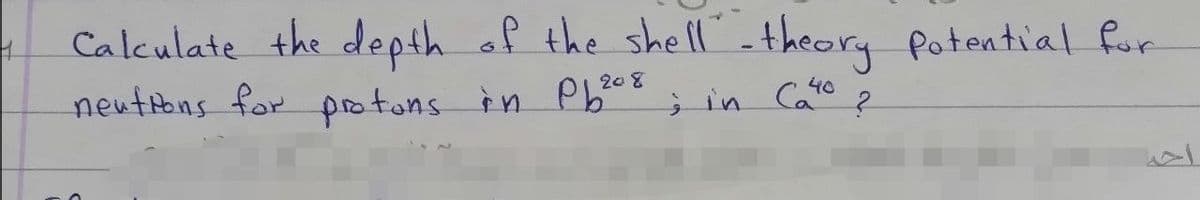 Calculate the depth of the shell - theory Potential for
neutrons for protons in Pb²⁰⁸ ; in Ca⁴⁰ ?